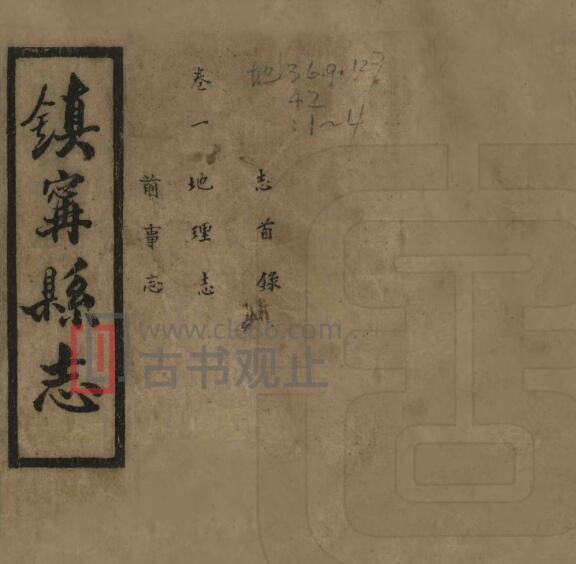 地36.9.123
42
:1~4
志首錄
卷一 地理志
前事志
鎮寗縣志
www.cl668.com
古书观止